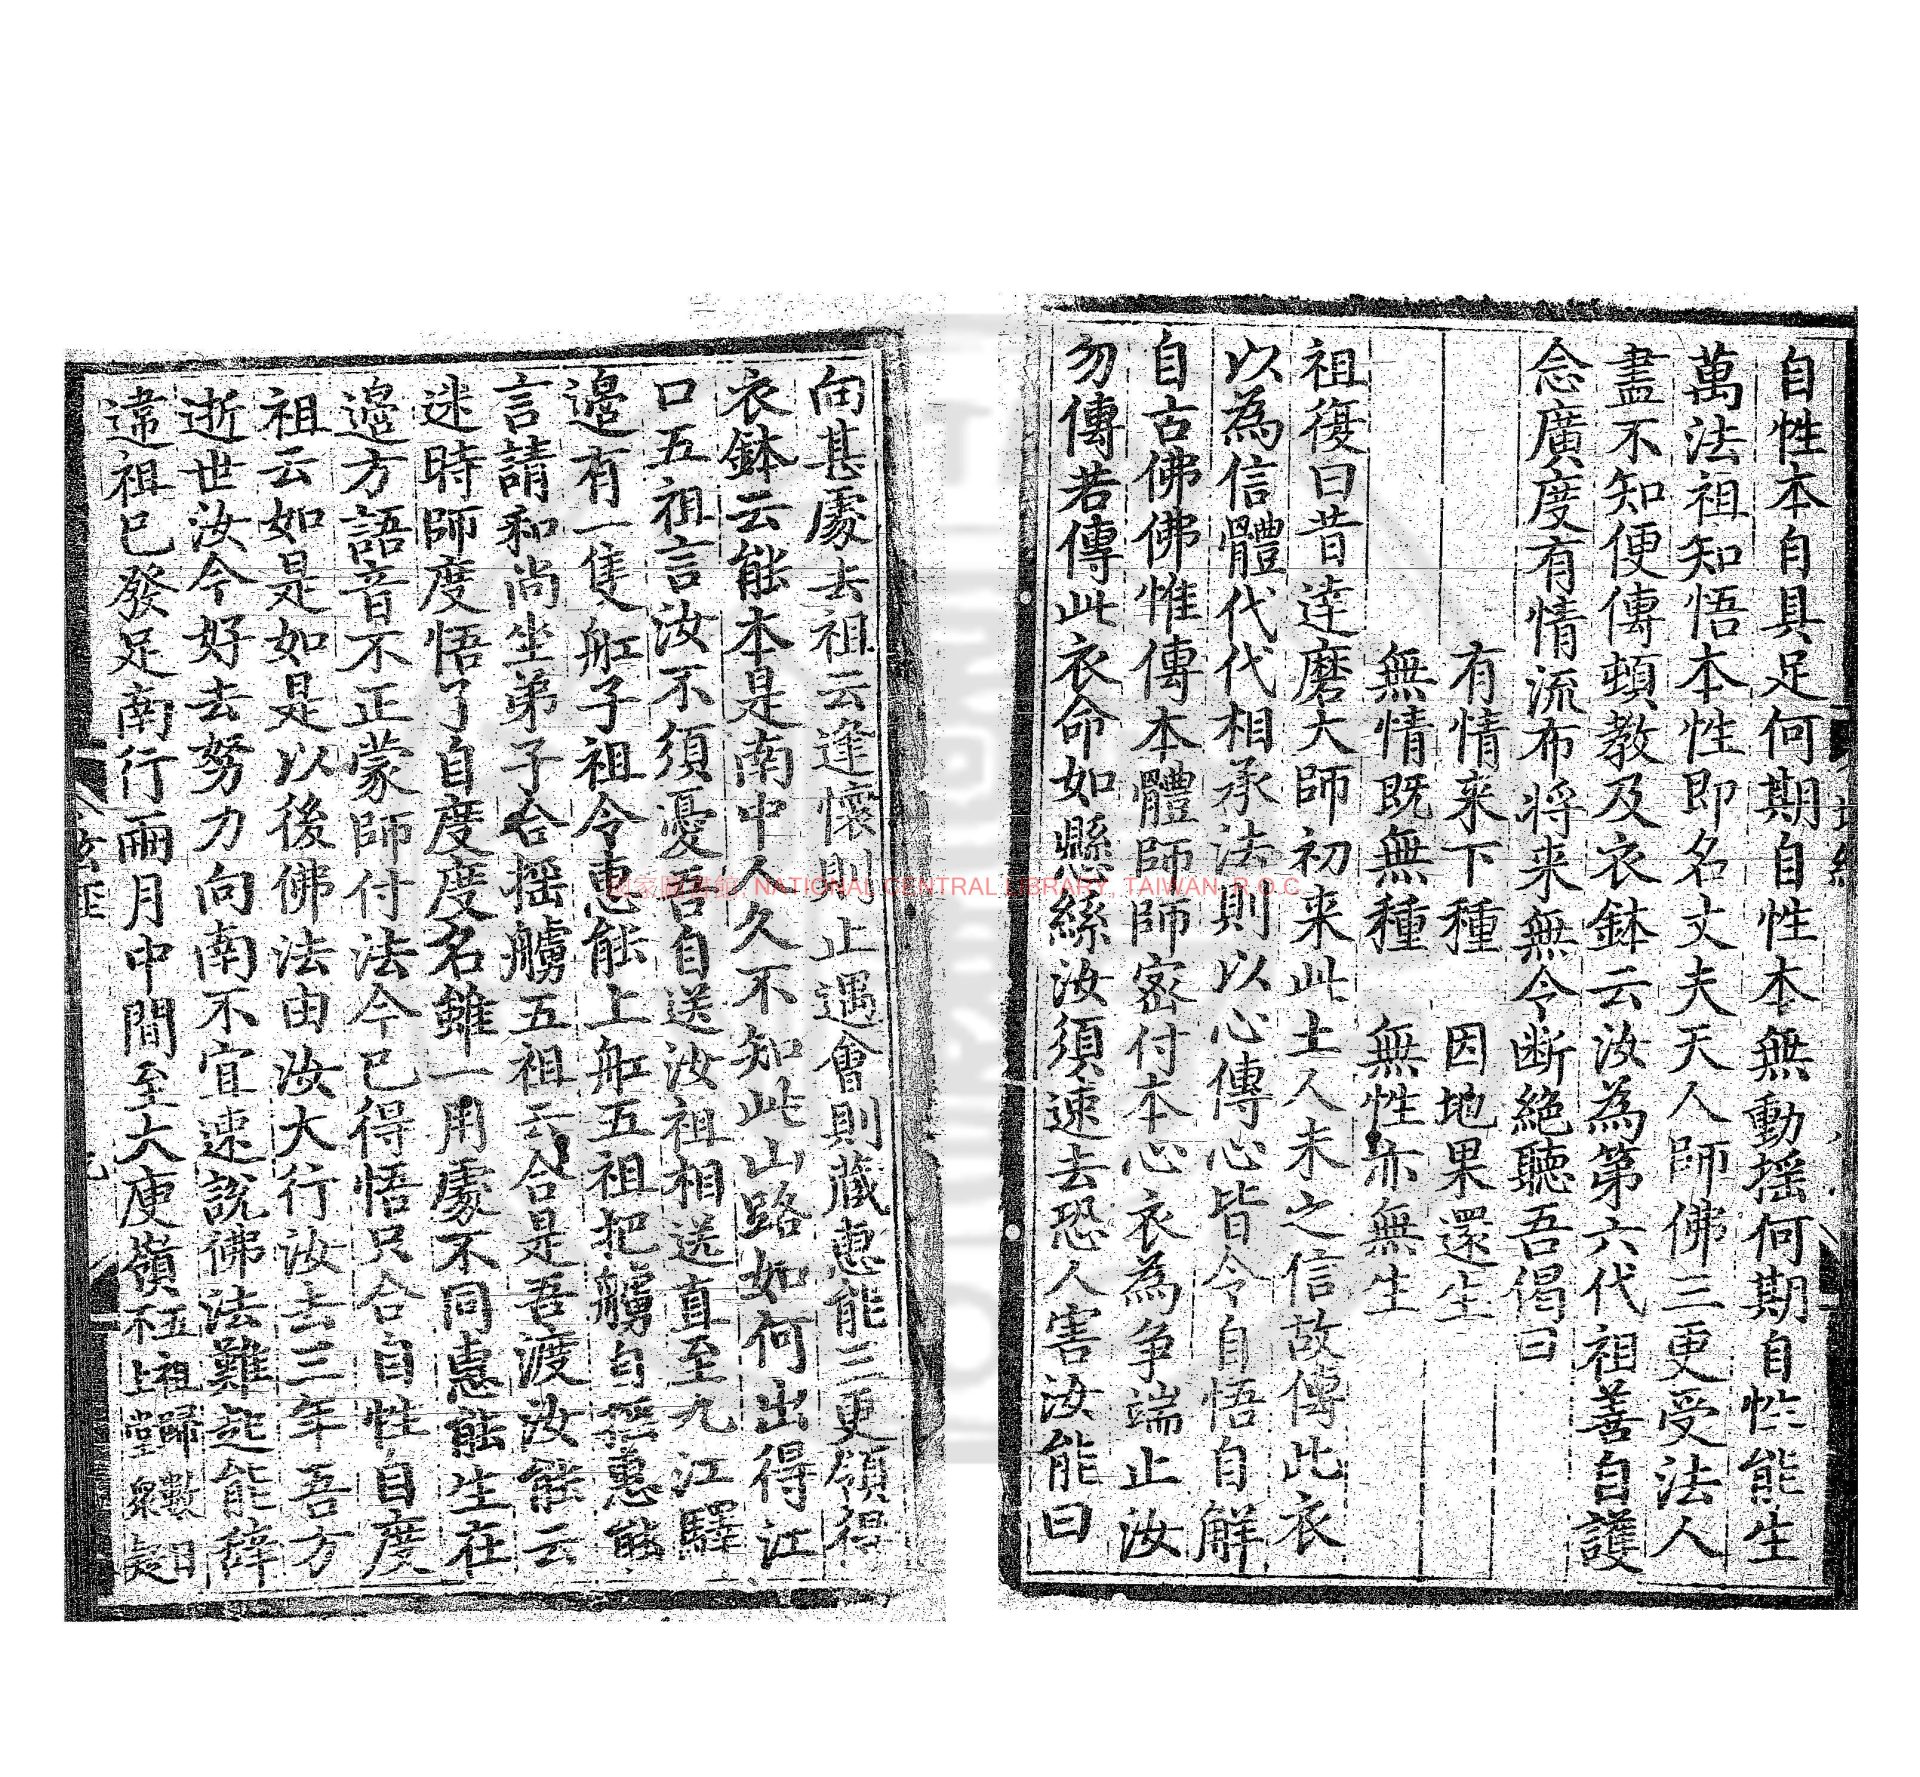 自性本自具足何期自性本無動揺何期自性能生
萬法祖知悟本性即名丈夫天人師佛三更受法人
盡不知便傳頓教及衣鉢云汝為第六代祖善自護
念廣度有情流布将来無令断絶聽吾偈曰
有情来下種 因地果還生
無情既無種 無性亦無生
祖復曰昔達磨大師初来此土人未之信故傳此衣
以為信體代代相承法則以心傳心皆令自悟自解
自古佛佛惟傳本體師師密付本心衣為争端止汝
勿傳若傳此衣命如懸絲汝須速去恐人害汝能曰
向甚處去祖云逢懷則止遇會則蔵惠能三更領得
衣鉢云能本是南中人久不知此山路如何出得江
口五祖言汝不須憂吾自送汝祖相送直至九江驛
邉有一隻舡子祖令惠能上舡五祖把艣自摇惠能
言請和尚坐弟子合揺艣五祖云合是吾渡汝能云
迷時師度悟了自度度名雖一用處不同惠能生在
邉方語音不正蒙師付法今已得悟只合自性自度
祖云如是如是以後佛法由汝大行汝去三年吾方
逝世汝今好去努力向南不宜速說佛法難起能辭
違祖已發足南行兩月中間至大庾嶺 五祖歸數日不上堂衆疑
國家圖書館, NATIONAL CENTRAL LIBRARY, TAIWAN, R.O.C.